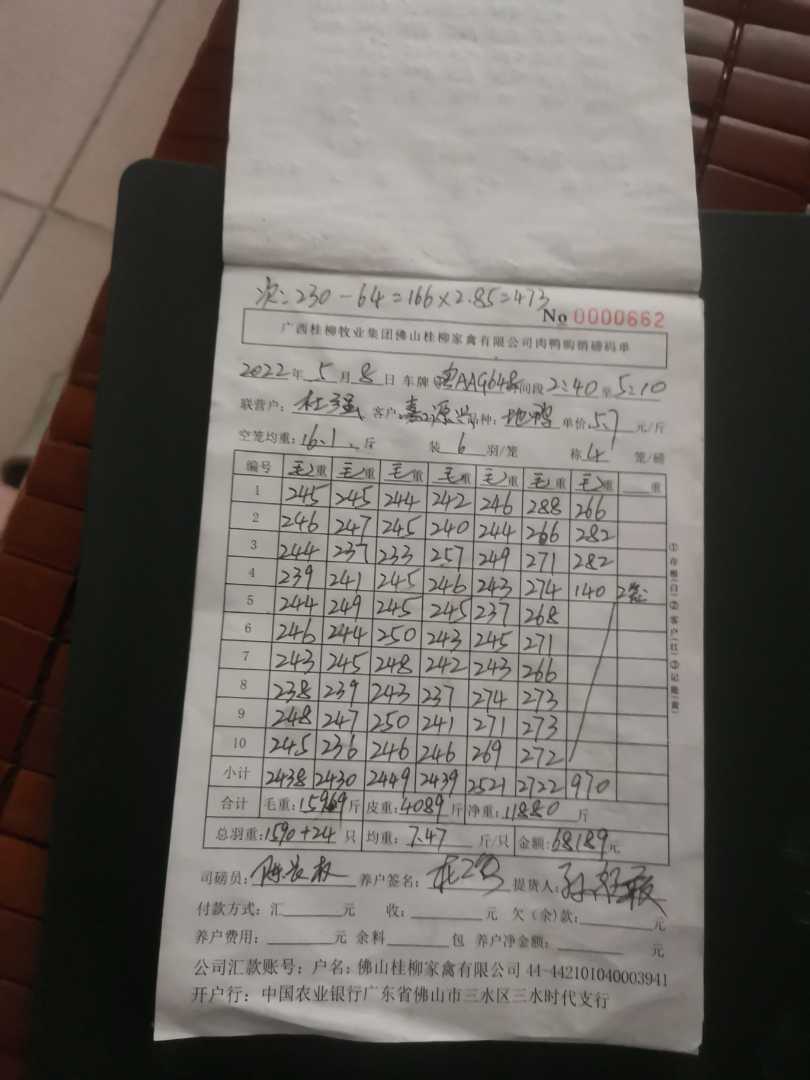 次: 230-64=166×2.85=473
No 0000662
广西桂柳牧业集团佛山桂柳家禽有限公司肉鸭购销磅码单
2022年 5月 8日 车牌 粤AAG648 时间段 2:40至5:10
联营户: 杜强 客户: 嘉源兴 品种: 地鸭 单价 5.7 元/斤
空笼均重: 16.1 斤 装 6 羽/笼 称 4 笼/磅
编号 毛重 毛重 毛重 毛重 毛重 毛重 毛重 重
1 245 245 244 242 246 288 266
2 246 247 245 240 244 266 282
3 244 237 233 257 249 271 282
4 239 241 245 246 243 274 140 2笼
5 244 249 245 245 237 268
6 246 244 250 243 245 271
7 243 245 248 242 243 266
8 238 239 243 237 274 273
9 248 247 250 241 271 273
10 245 236 246 246 269 272
小计 2438 2430 2449 2439 2521 2722 970
合计 毛重: 15969斤 皮重: 4089斤 净重: 11880斤
总羽重: 1590+24 只 均重: 7.47 斤/只 金额: 68189元
司磅员: 养户签名: 提货人:
付款方式: 汇 元 收: 元 欠(余)款: 元
养户费用: 元 余料 包 养户净金额: 元
公司汇款账号: 户名: 佛山桂柳家禽有限公司 44-442101040003941
开户行: 中国农业银行广东省佛山市三水区三水时代支行
①存根(白)②客户(红)③记账(黄)